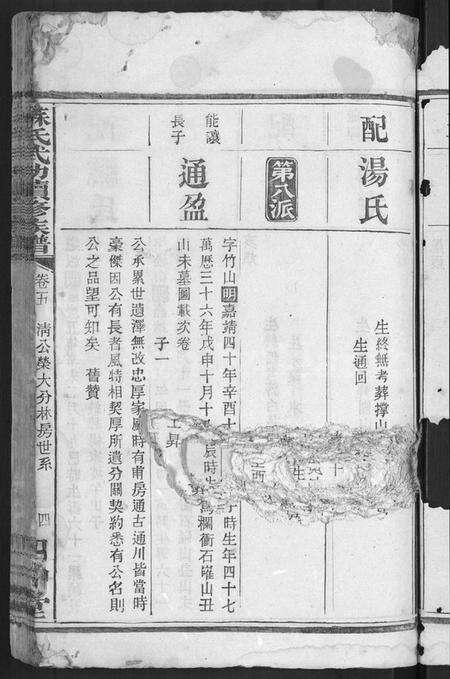 配湯氏
生終無考葬撑山
生
生通回
第八派
能讓
長子
通盈
字竹山明嘉靖四十年辛酉十
時生年四十七
萬歷三十六年戊申十月十
辰時
欄衝石確山丑
山未墓圖載次卷
子一
昇
公承累世遺澤無改忠厚家風時有甫房通古通川皆當時
豪傑因公有長者風特相契厚所遺分關契約悉有公名則
公之品望可知矣 舊贊
蘇氏武功續修族譜
卷五
清公榮大分林房世系
四